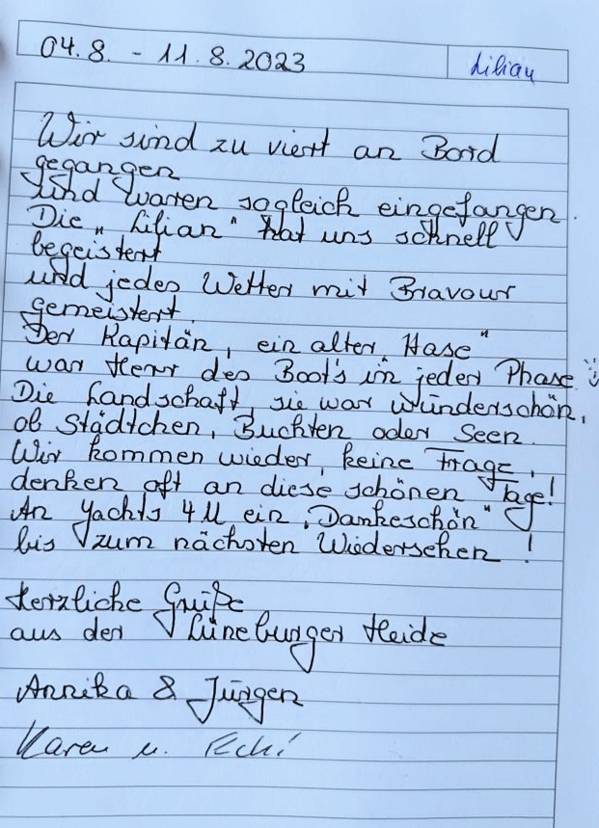 04.8. - 11.8.2023 Lilian
Wir sind zu viert an Bord
gegangen
und waren sogleich eingefangen.
Die „Lilian" hat uns schnell
begeistert
und jedes Wetter mit Bravour
gemeistert.
Der Kapitän, ein alter „Hase"
war Herr des Boot's in jeder Phase :)
Die Landschaft, sie war wunderschön,
ob Städtchen, Buchten oder Seen.
Wir kommen wieder, keine Frage,
denken oft an diese schönen Tage!
An Yachts 4U ein „Dankeschön"
bis zum nächsten Wiedersehen!
Herzliche Grüße
aus der Lüneburger Heide
Annika & Jürgen
Karen u. Ecki